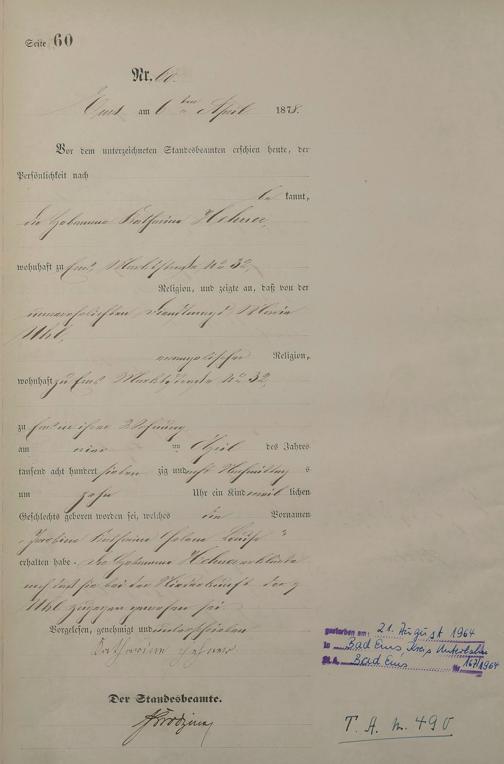 Seite 60
Nr. 60.
Ems am 6ten April 1878.
Vor dem unterzeichneten Standesbeamten erschien heute, der
Persönlichkeit nach
be kannt,
die Hebamme Katharina Hehner,
wohnhaft zu Ems, Marktstraße No 32,
Religion, und zeigte an, daß von der
unverehelichten Maria
Uhl,
evangelischer Religion,
wohnhaft zu Ems Marktstraße No 32,
zu Ems in ihrer Wohnung
am April des Jahres
tausend acht hundert sieben zig und acht Nachmittags
um zehn Uhr ein Kind weib lichen
Geschlechts geboren worden sei, welches Vornamen
Katharina Louise
erhalten habe. Die Hebamme Hehner erklärte
daß sie bei der Niederkunft der
Uhl zugegen gewesen sei
Vorgelesen, genehmigt und unterschrieben
Katharina Hehner
Der Standesbeamte.
gestorben am: 21. August 1964
in Bad Ems, Kreis Unterlahn
St.A. Bad Ems Nr. 167/1964
T. A. N. 490